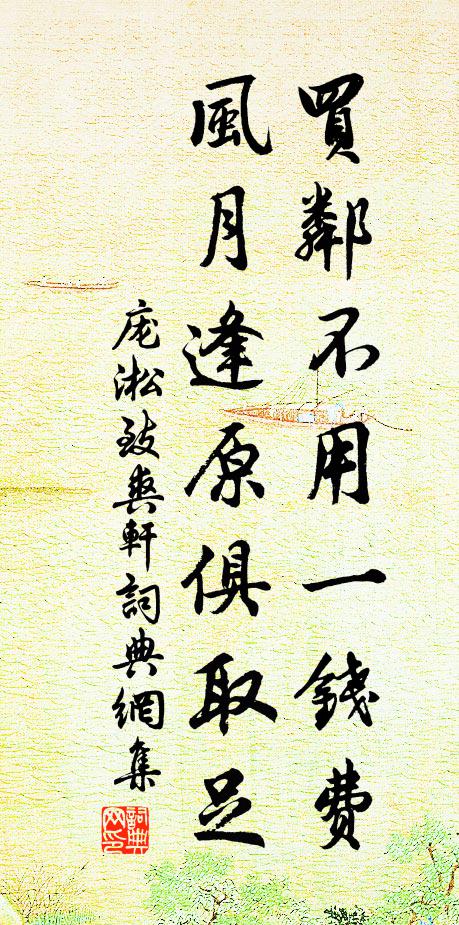 買鄰不用一錢費
風月逢原俱取足
庞淞致爽軒詞典網集
詞典網印